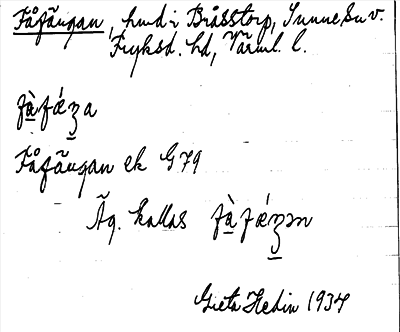 Fåfängan, hmd i Bråsstorp, Sunne sn v.
Fryksd. hd, Värml. l.
fàfǽʒa
Fåfängan ek G79
Äg. kallas fàfǽʒən
Greta Hedin 1934